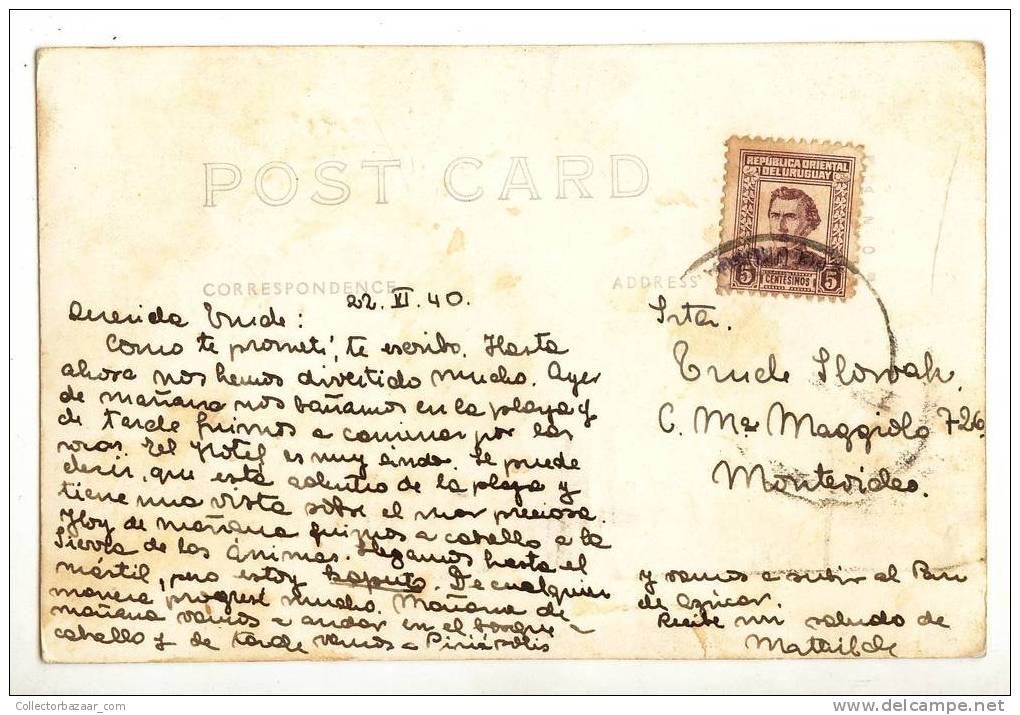 POST CARD
REPÚBLICA ORIENTAL
DEL URUGUAY
5 CENTESIMOS 5
CORRESPONDENCE
ADDRESS
22. VI. 40.
Querida Trude:
Como te prometí, te escribo. Hasta
ahora nos hemos divertido mucho. Ayer
de mañana nos bañamos en la playa y
de tarde fuimos a caminar por las
rocas. El Hotel es muy lindo. Se puede
decir, que está adentro de la playa y
tiene una vista sobre el mar preciosa.
Hoy de mañana fuimos a caballo a la
Sierra de las Ánimas. Llegamos hasta el
mástil, pero estoy kaputo. De cualquier
manera progresé mucho. Mañana de
mañana vamos a andar en el bosque a
caballo y de tarde vamos a Piriápolis
y vamos a subir al Pan
de Azúcar.
Recibe un saludo de
Mathilde
Srta.
Trude
C. Ma. Maggiolo 726.
Montevideo.
CollectorBazaar.com
delcampe.net